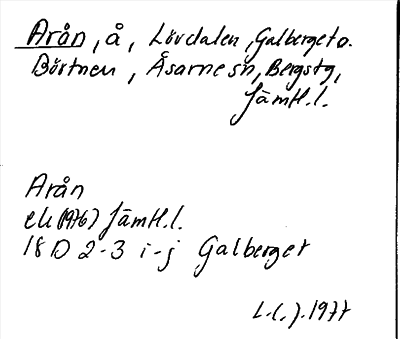 Arån, å, Lövdalen, Galberget o.
Börtnen, Åsarne sn, Bergs tg,
Jämtl.l.
Arån
ek (1976) Jämtl.l.
18 D 2-3 i-j Galberget
L.L.J. 1977